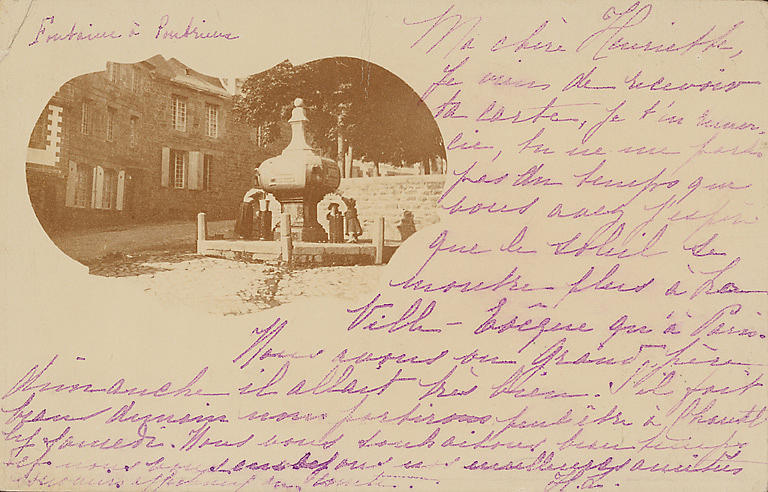 Fontaine à Pontrieux
Ma chère Henriette,
Je viens de recevoir
ta carte, je t'en remer-
cie, tu ne me parles
pas du temps que
vous avez j'espère
que le soleil se
montre plus à La
Ville-Evêque qu'à Paris.
Nous avons vu Grand, père
Dimanche il allait très bien. S'il fait
beau demain nous partirons peut être à Chantilly
Samedi. Nous vous souhaitons beau temps
et nous vous envoyons nos meilleures amitiés
H.A.